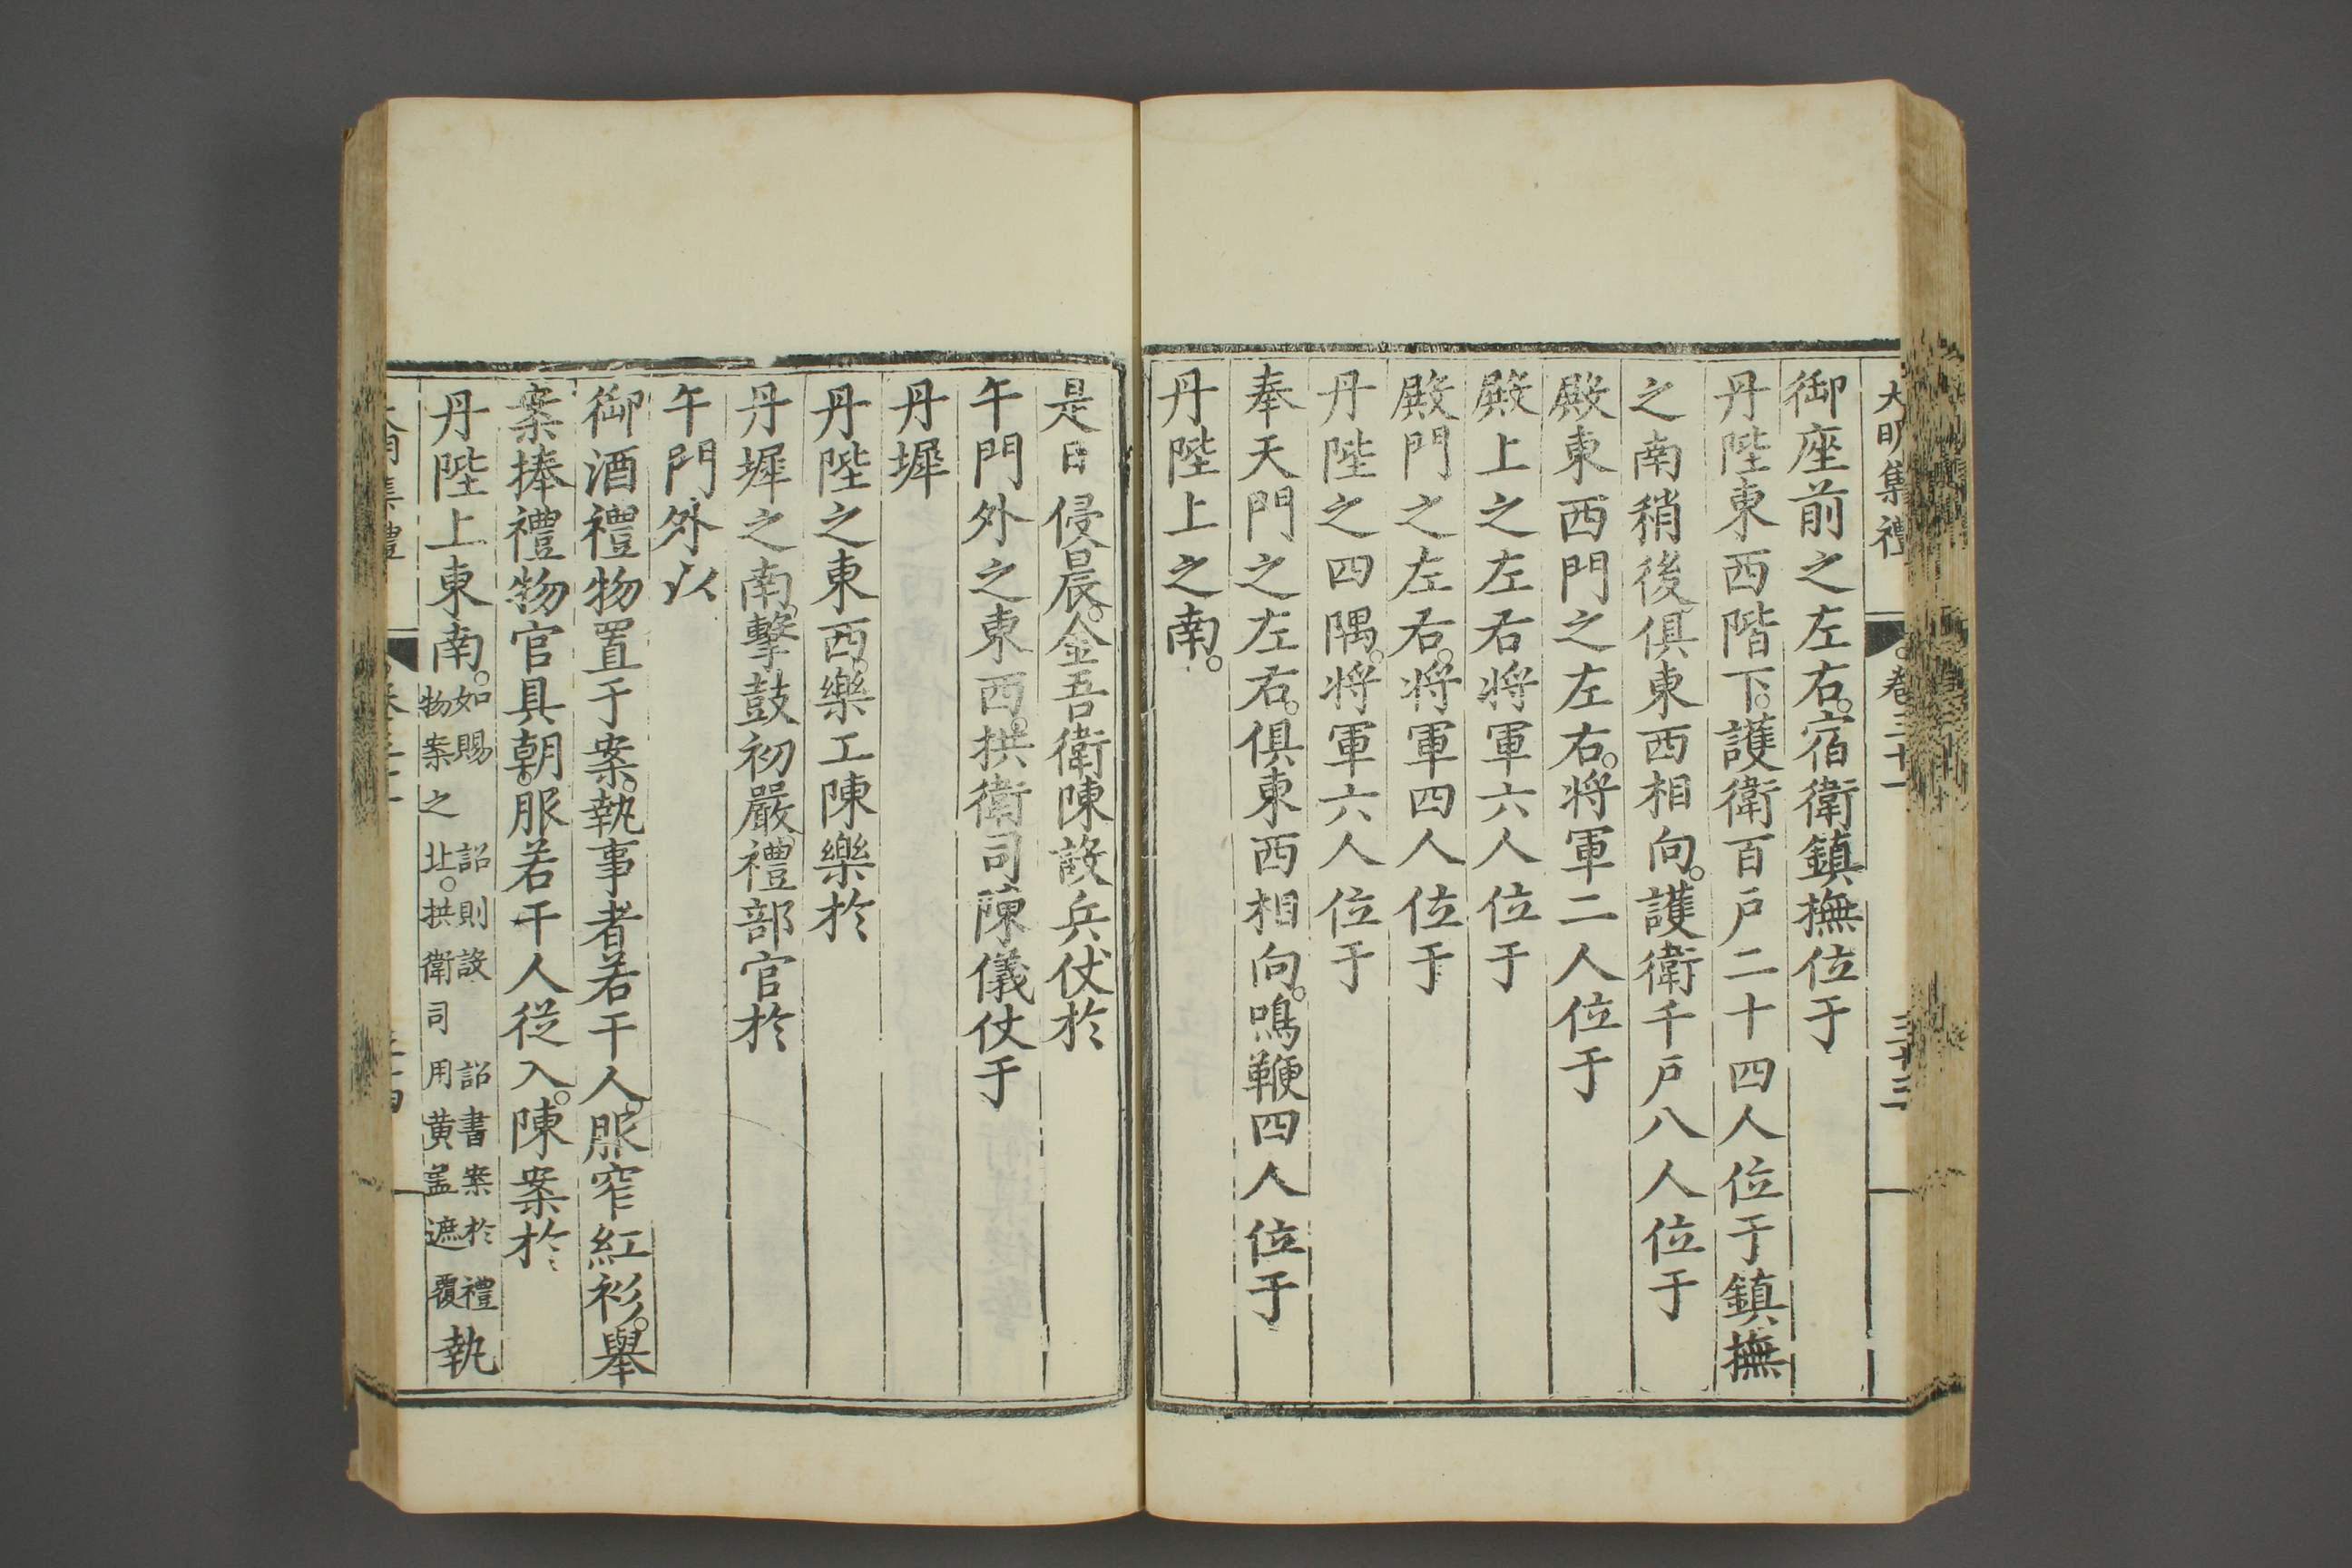 大明集禮 卷三十一 三十三
御座前之左右。宿衛鎮撫位于
丹陛東西階下。護衛百戶二十四人位于鎮撫
之南稍後俱東西相向。護衛千戶八人位于
殿東西門之左右。将軍二人位于
殿上之左右将軍六人位于
殿門之左右。将軍四人位于
丹陛之四隅。将軍六人位于
奉天門之左右。俱東西相向。鳴鞭四人位于
丹陛上之南。
是日侵晨。金吾衛陳設兵仗於
午門外之東西。拱衛司陳儀仗于
丹墀
丹陛之東西。樂工陳樂於
丹墀之南。擊鼓初嚴禮部官於
午門外以
御酒禮物置于案。執事者若干人。服窄紅衫。舉
案捧禮物官具朝。服若干人從入。陳案於
丹陛上東南。如賜 詔則設 詔書案於禮
物案之北。拱衛司用黄盖遮覆執